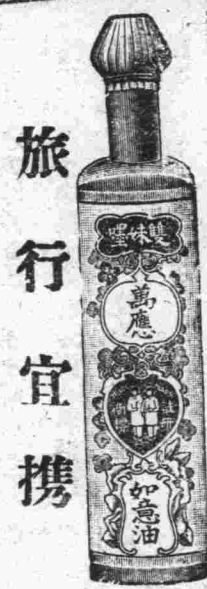 旅行宜携
雙妹嘜
萬應
如意油